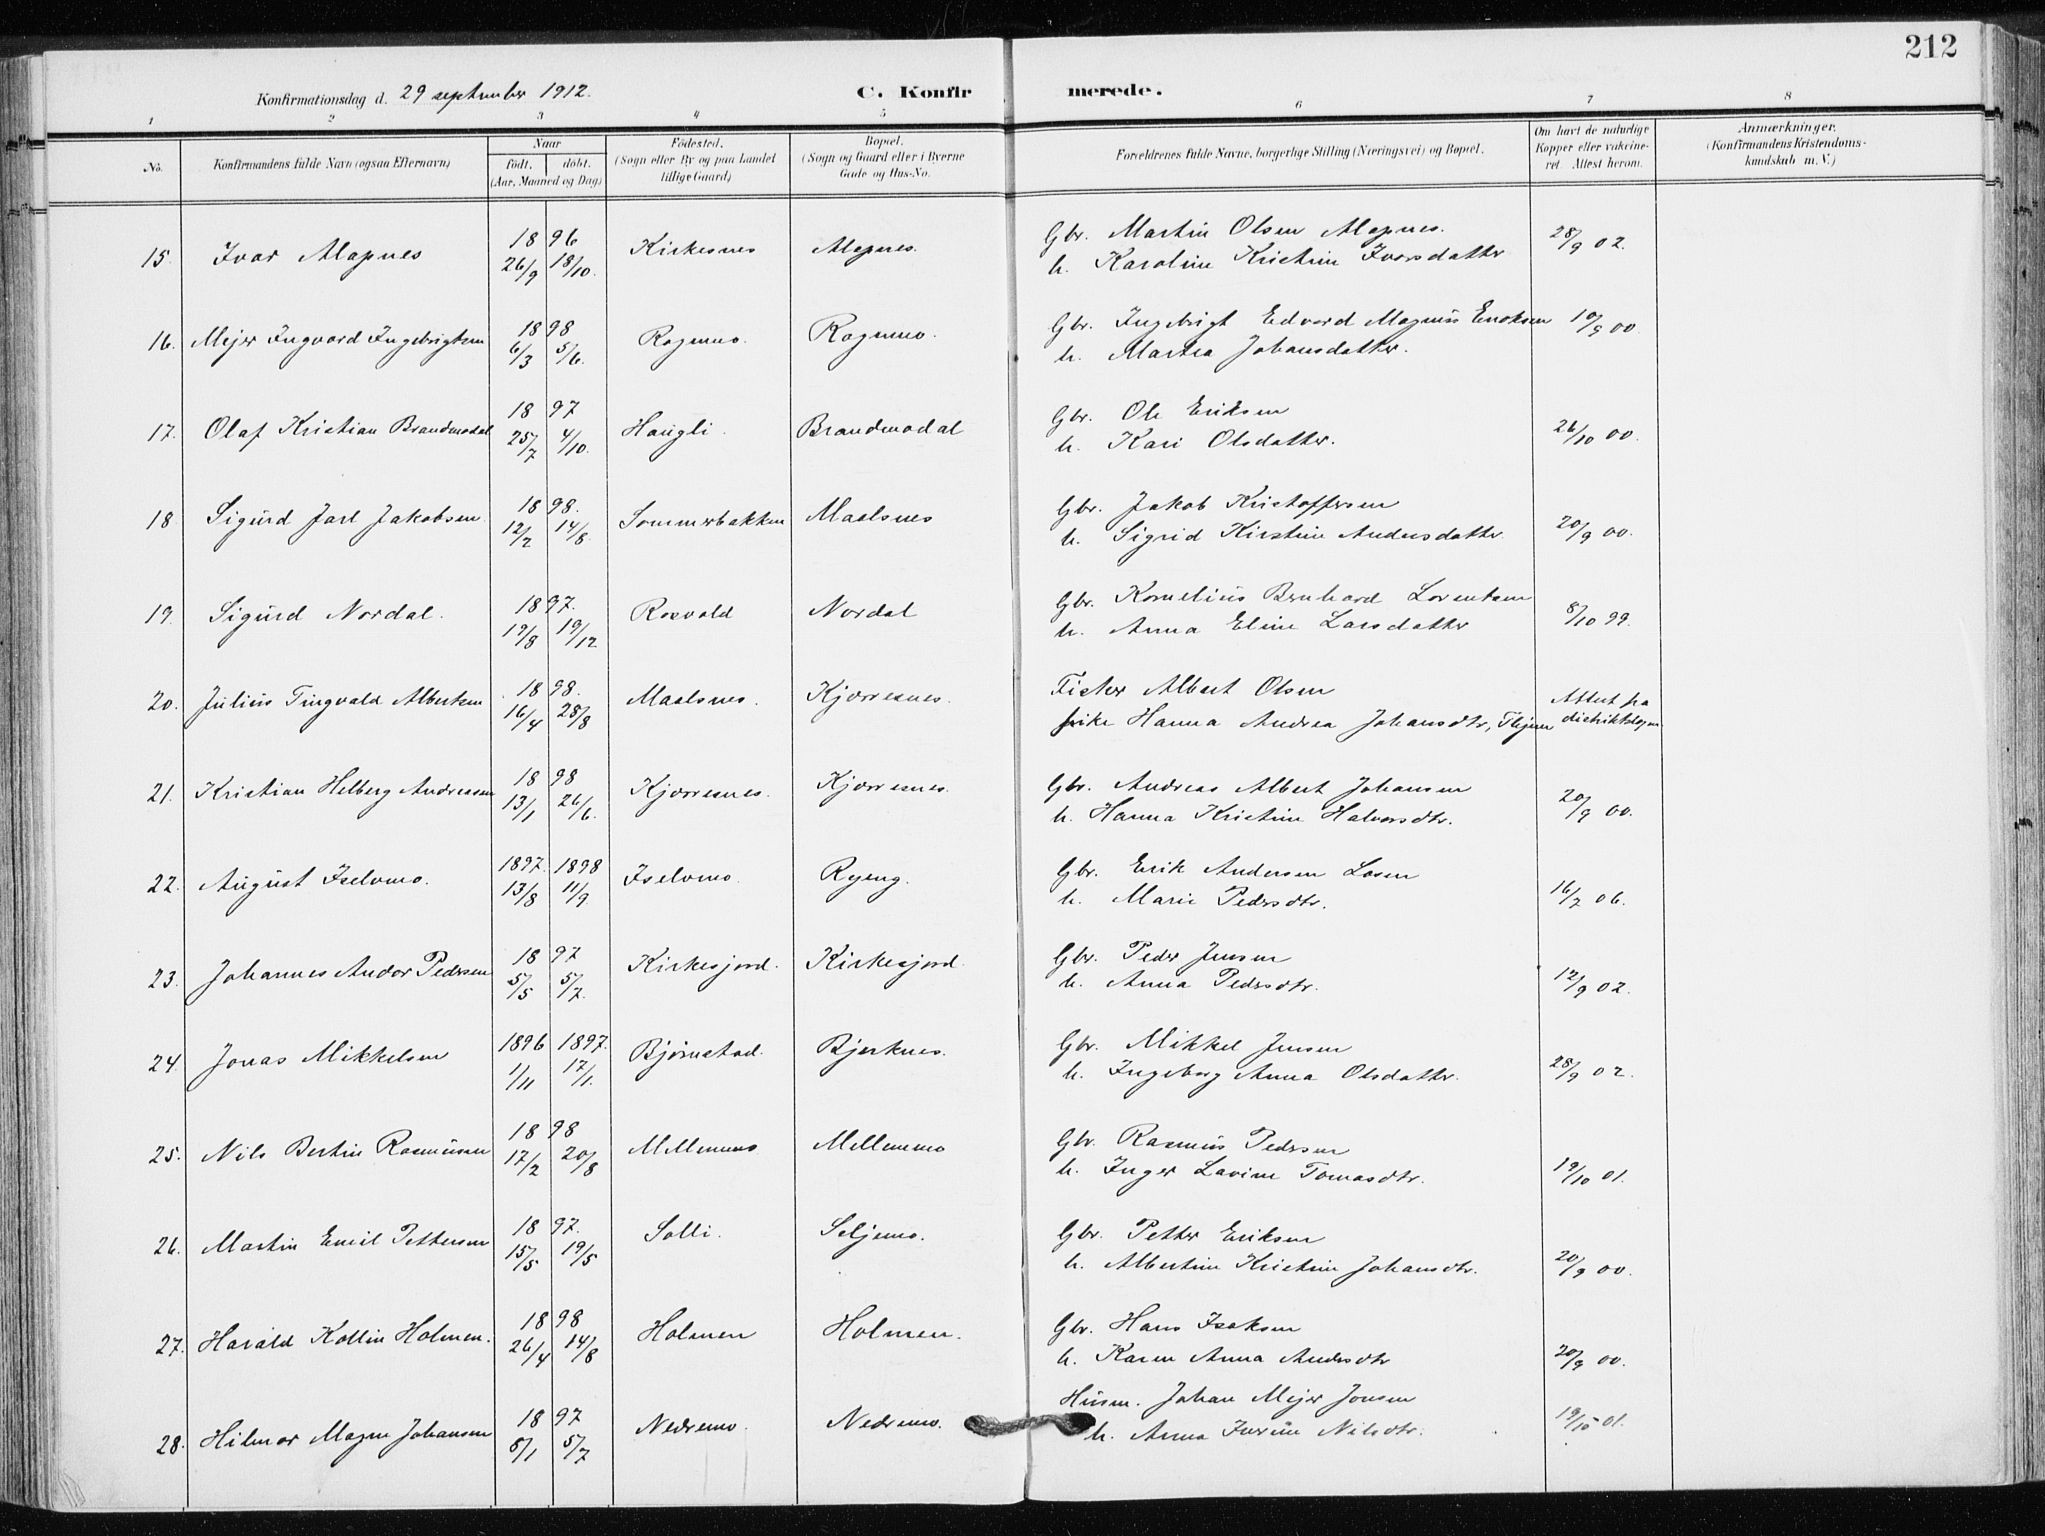 212
Konfirmationsdag d. 29 september 1912. C. Konfirmerede.
1 2 3 4 5 6 7 8
No. Konfirmandens fulde Navn (ogsaa Efternavn) Naar født. døbt. (Aar, Maaned og Dag) Fødested. (Sogn eller By og paa Landet tillige Gaard) Bopæl. (Sogn og Gaard eller i Byerne Gade og Hus-No. Forældrenes fulde Navne, borgerlige Stilling (Næringsvei) og Bopæl. Om havt de naturlige Kopper eller vakcineret. Attest herom. Anmærkninger. (Konfirmandens Kristendomskundskab m. V.)
15. Ivar Alapnes 1896 26/9 18/10. Kirkesnes Alapnes. Gbr. Martin Olsen Alapnes. 28/9 02.
h. Karoline Kristine Ivarsdatter
16. Mejer Ingvard Ingebrigtsen 1898 6/3 5/6. Rognmo. Rognmo. Gbr. Ingebrigt Edvard Magnus Enoksen 10/9 00.
h. Martea Johansdatter.
17. Olaf Kristian Brandmodal 1897 25/7 4/10. Haugli. Brandmodal Gbr. Ole Eriksen
h. Kari Olsdatter. 26/10 00.
18 Sigurd Jarl Jakobsen 1898. 12/2 14/8. Sommerbakken Maalsnes Gbr. Jakob Kristoffersen
h. Sigrid Kirstine Andersdatter 20/9 00.
19. Sigurd Nordal. 1897. 19/8 19/12 Rosvold Nordal Gbr. Kornelius Bernhard Lorentsen
h. Anna Eline Larsdatter 8/10 99.
20. Julius Tingvald Albertsen 1898. 16/4 28/8 Maalsnes. Kjærresnes. Fisker Albert Olsen Attest fra
pike Hanna Andrea Johansdtr, distriktslegen.
21. Kristian Helberg Andreassen 1898 13/1 26/6. Kjærresnes. Kjærresnes. Gbr. Andreas Albert Johansen
h. Hanna Kristine Halvorsdtr. 20/9 00.
22. August Iselvmo. 1897. 13/8 1898 11/9. Iselvmo. Ryeng. Gbr. Erik Andersen Losen
h. Marie Pedersdtr. 16/7 06.
23. Johannes Andor Pedersen 1897 5/5 5/7. Kirkesjord. Kirkesjord. Gbr. Peder Jensen
h. Anna Pedersdtr. 12/9 02.
24. Jonas Mikkelsen 1896 1/11 1897. 17/1. Bjørnstad. Bjerknes. Gbr. Mikkel Jensen
h. Ingeborg Anna Olsdatter. 28/9 02.
25. Nils Bertin Rasmusen 1898 17/2 20/8 Mellemmo Mellemmo Gbr. Rasmus Pedersen
h. Inger Lavine Tomasdtr. 19/10 01.
26. Martin Emil Pettersen 1897. 15/5 19/5 Solli. Seljemo. Gbr. Petter Eriksen
h. Albertine Kristine Johansdtr. 20/9 00.
27. Harald Kollin Holmen. 1898 26/4 14/8 Holmen Holmen. Gbr. Hans Isaksen
h. Karen Anna Andersdtr 20/9 00.
28. Hilmar Magne Johansen 1897 8/1 5/7 Nedremo. Nedremo. Husm. Johan Mejer Jonsen
h. Anna Nilsdtr. 19/10 01.